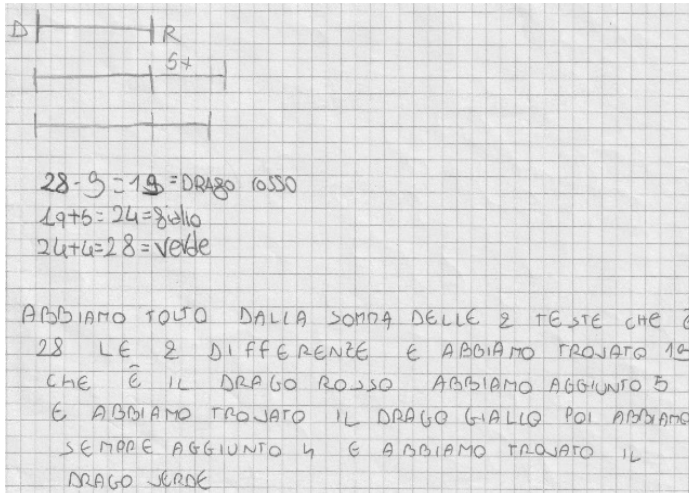 D R
5+
28-9=19=DRAgo rosso
19+5=24=giallo
24+4=28=verde
ABBIAMO TOLTO DALLA SOMMA DELLE 2 TESTE CHE È
28 LE 2 DIFFERENZE E ABBIAMO TROVATO 19
CHE È IL DRAGO ROSSO ABBIAMO AGGIUNTO 5
E ABBIAMO TROVATO IL DRAGO GIALLO POI ABBIAMO
SEMPRE AGGIUNTO 4 E ABBIAMO TROVATO IL
DRAGO VERDE